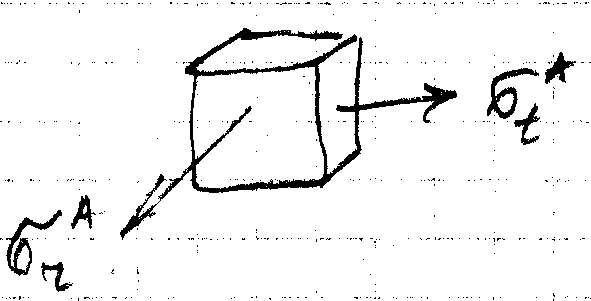 σ_t^A
σ_r^A